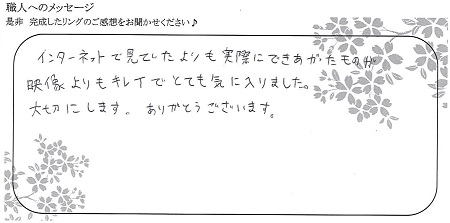 職人へのメッセージ
是非 完成したリングのご感想をお聞かせください♪
インターネットで見ていたよりも実際にできあがたものが
映像よりもキレイでとても気に入りました。
大切にします。ありがとうございます。